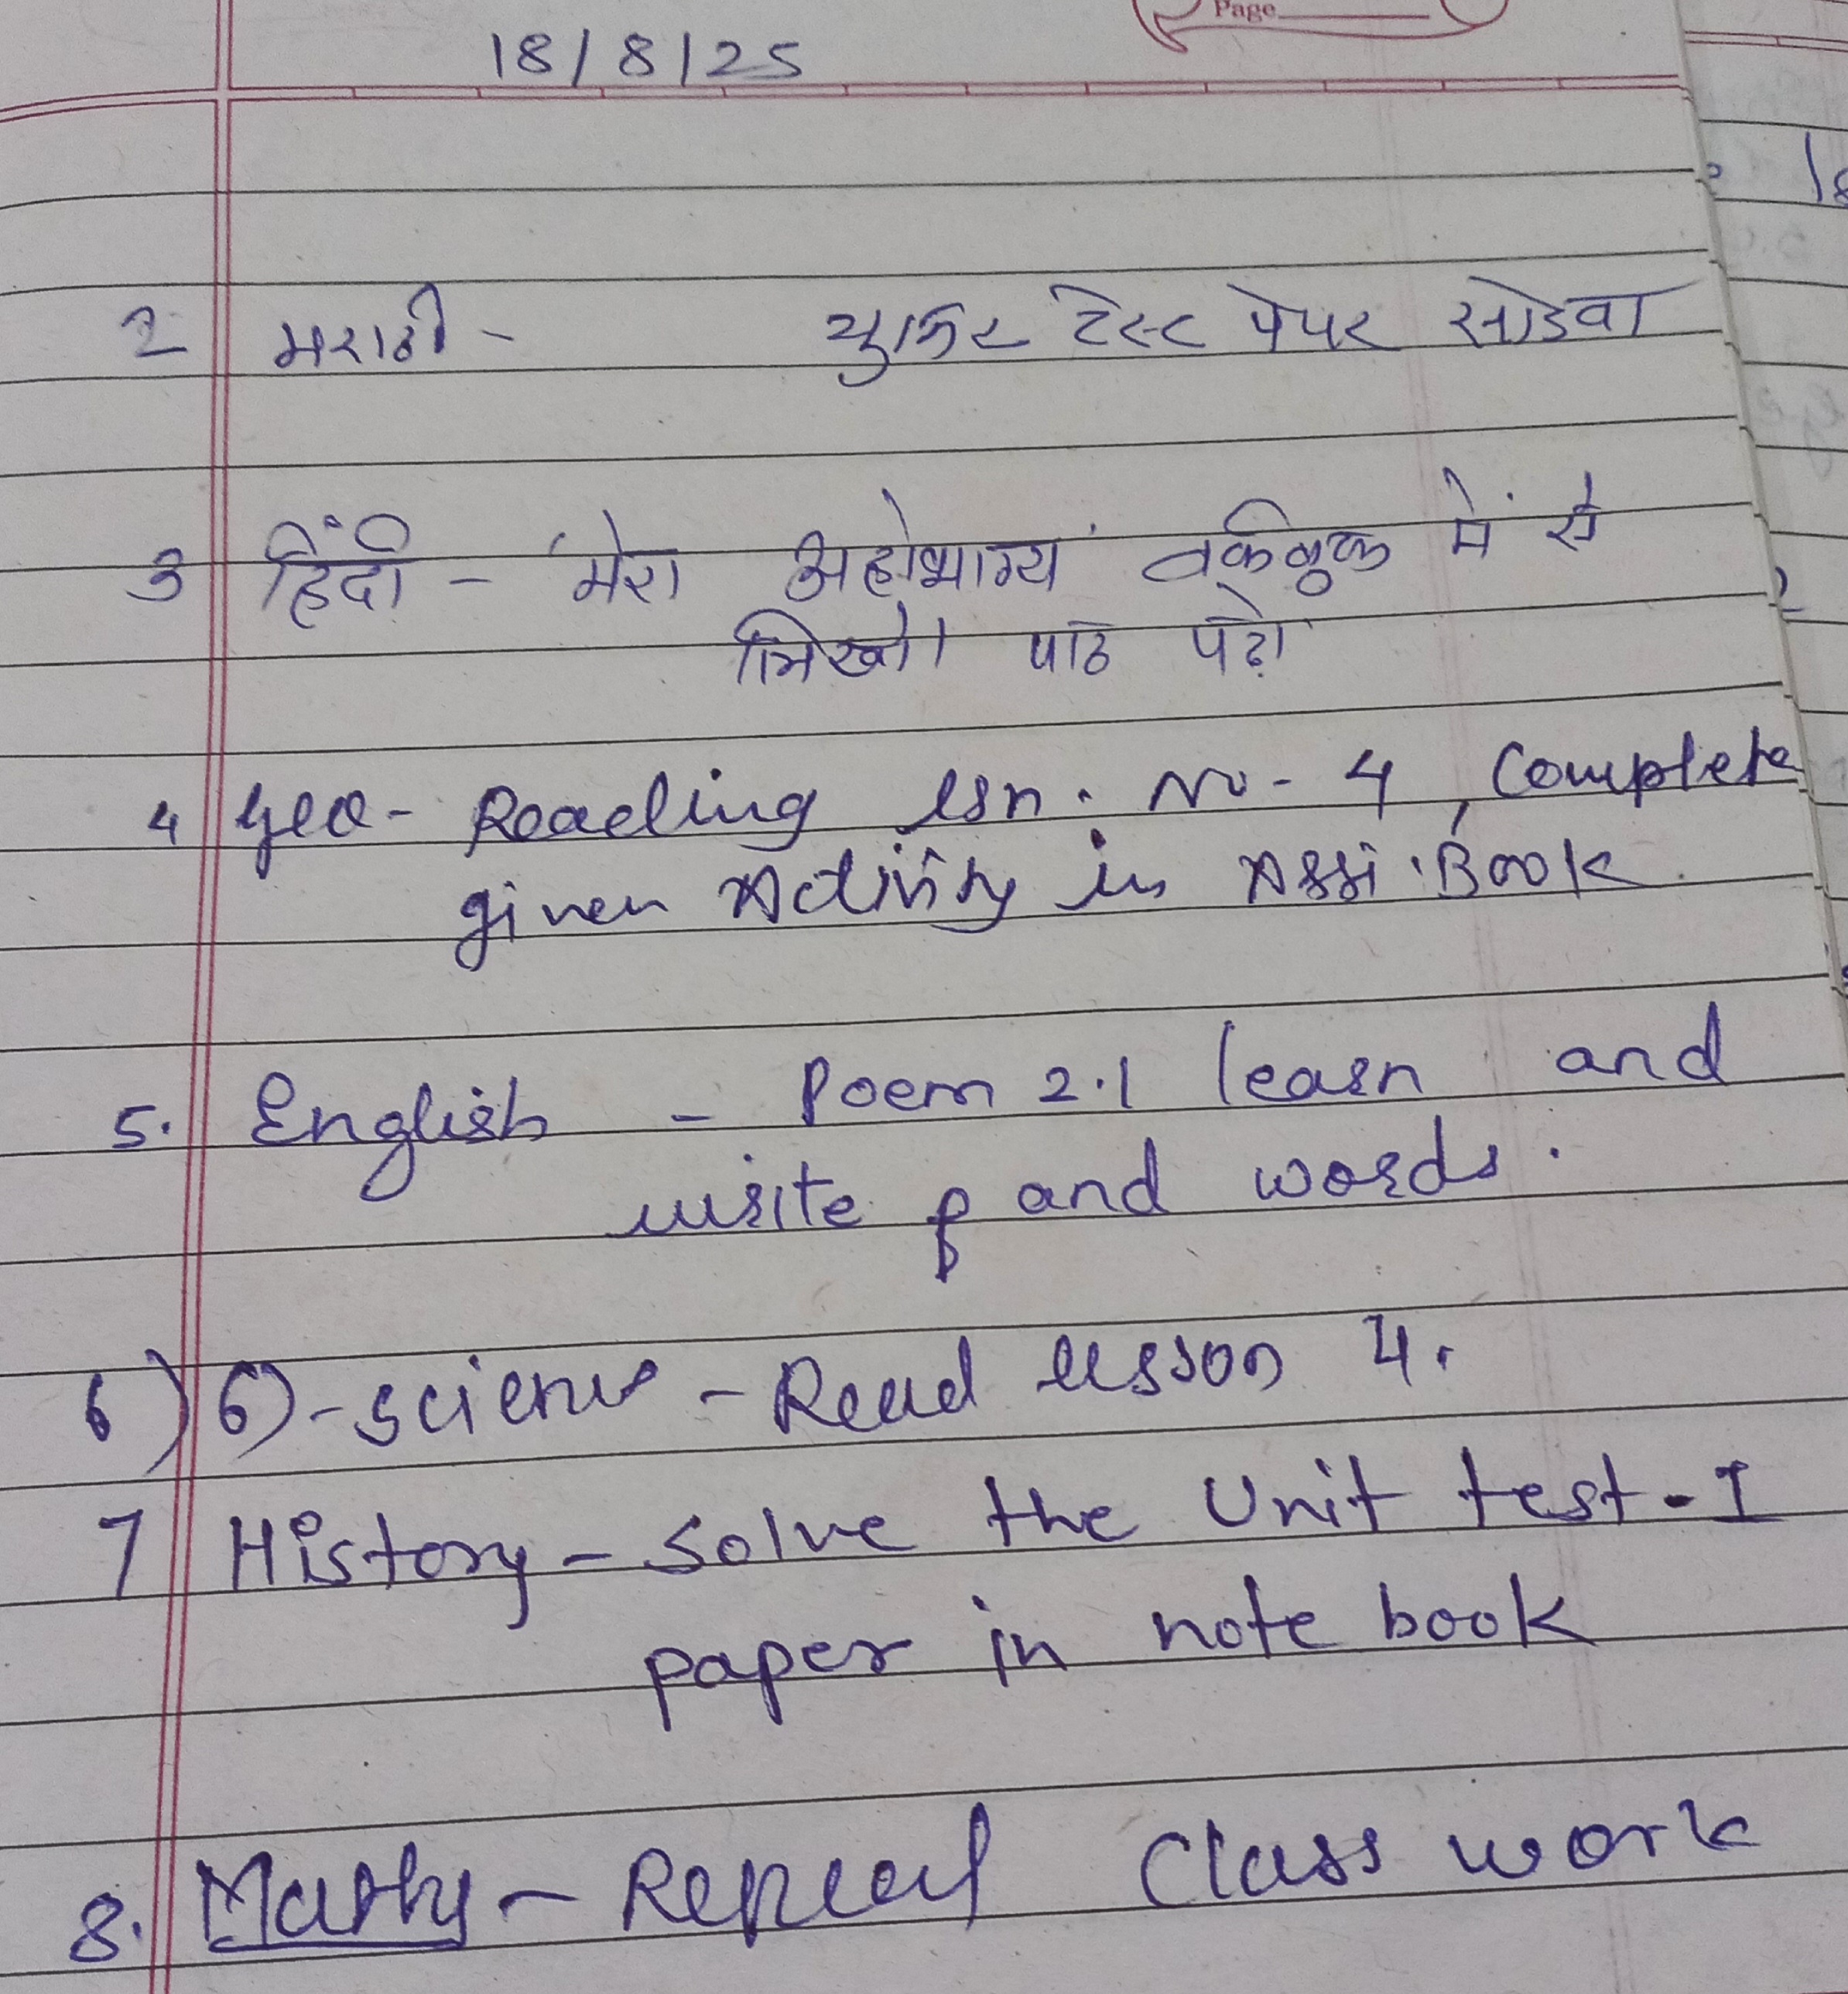 Page
18/8/25
2 मराठी - युनिट टेस्ट पेपर सोडवा
3 हिंदी - 'मेरा अहोभाग्य' वर्कबुक में से
लिखो। पाठ पढ़ो
4 Geo - Reading lsn. No - 4, Complete
given Activity in Assi. Book.
5. English - Poem 2.1 learn and
write and words.
6) 6) - science - Read lesson 4.
7 History - Solve the Unit test - I
paper in note book
8. Maths - Repeat Class work